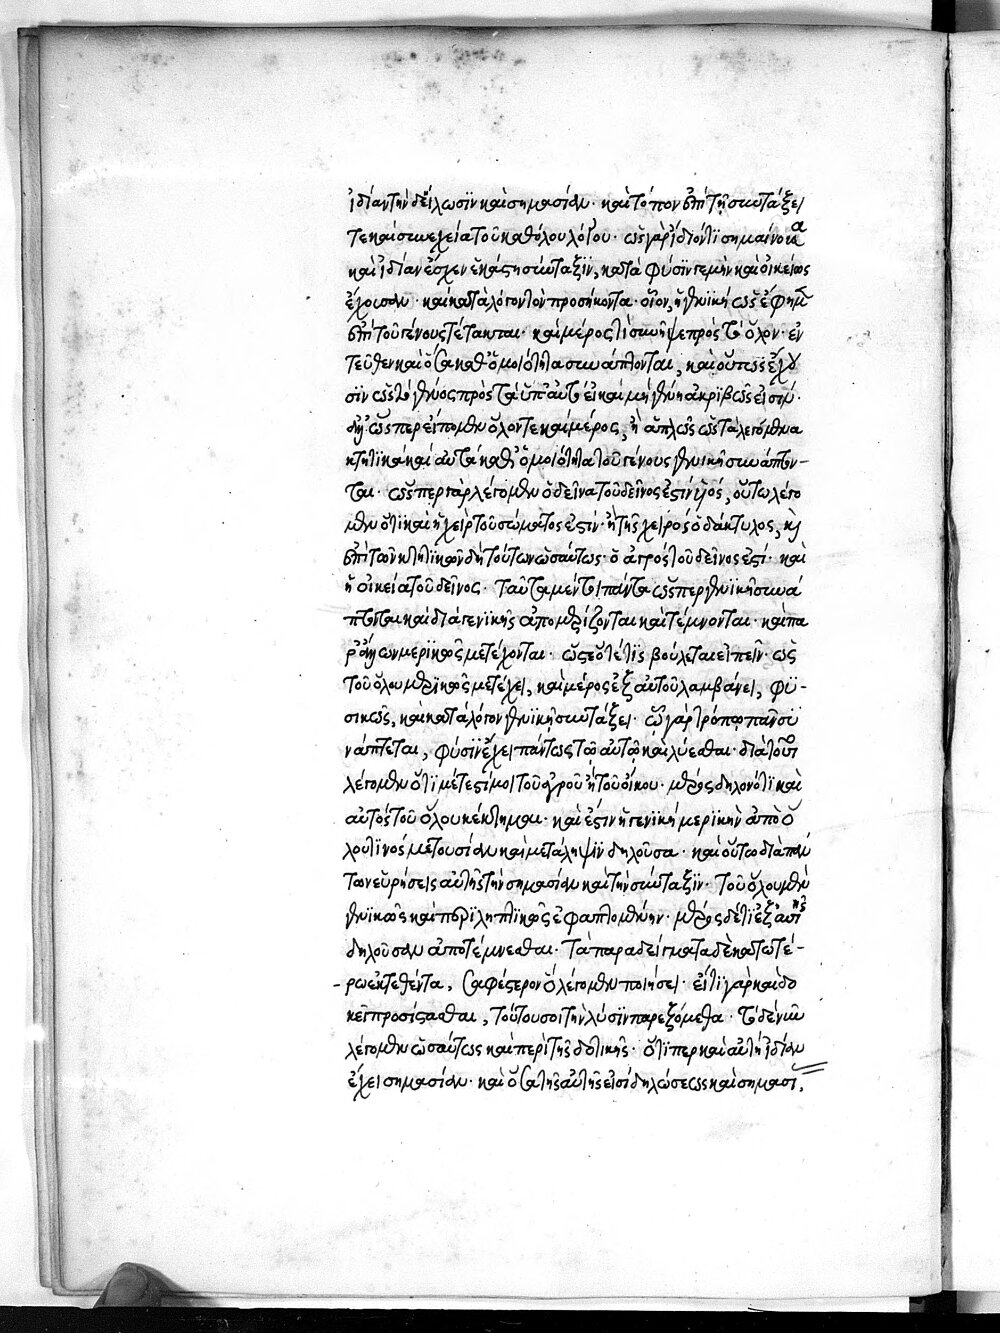 ἰδίαν τὴν δείλωσϊν καὶ σημασίαν· καὶ τόπον ἐπὶ τῇ συντάξει
τε καὶ συνεχεία τοῦ καθόλου λόγου· ὡς γὰρ ἴδιόν τι σημαίνουσα
καὶ ἰδίαν ἔσχεν ἑκάστη σύνταξϊν, κατὰ φύσϊν γε μὴν καὶ οἰκείως
ἔχουσαν· καὶ κατὰ λόγον τὸν προσήκοντα· οἷον, ἡ γενϊκὴ ὡς ἔφημεν
ἐπὶ τοῦ γένους τέτακται· καὶ μέρος τὶ συνῆψε πρὸς τὸ ὅλον· ἐν
τεῦθεν καὶ ὅσα καθ' ὁμοιότητα συνάπτονται, καὶ οὕτως ἔχου
σϊν ὡς τὸ γένος πρὸς τὰ ὑπ' αὐτό εἰ καὶ μὴ γένη ἀκρϊβῶς εἰσίν·
δὴ ὥσπερ εἴπομεν ὅλον τε καὶ μέρος, ἢ ἁπλῶς ὡς τὰ λεγόμενα
κτητϊκὰ καὶ αὐτὰ καθ' ὁμοιότητα τοῦ γένους γενικῇ συνάπτον-
ται· ὥσπερ γὰρ λέγομεν ὁ δεῖνα τοῦ δεῖνος ἐστὶν υἱός, οὕτω λέγο
μεν ὅτι καὶ ἡ χεὶρ τοῦ σώματος ἐστίν· ἢ τῆς χειρὸς ὁ δάκτυλος, καὶ
ἐπὶ τῶν κτητϊκῶν δὴ τούτων ὡσαύτως· ὁ ἀγρὸς τοῦ δεῖνος ἐστί· καὶ
ἡ οἰκεία τοῦ δεῖνος· ταῦτα μέντοι πάντα ὥσπερ γενϊκῇ συνά
πτονται καὶ διὰ γενϊκῆς ἀπομερίζονται καὶ τέμνονται· καὶ πα
ρ' ὧν μερϊκῶς μετέχονται· ὥστε ὅτε τὶς βούλεται εἰπεῖν· ὡς
τοῦ ὅλου μερϊκῶς μετέχει, καὶ μέρος ἐξ αὐτοῦ λαμβάνει, φϋ-
σικῶς, καὶ κατὰ λόγον γενϊκῇ συντάξει· ᾧ γὰρ τρόπῳ πᾶν σϋ
νάπτεται, φύσϊν ἔχει πάντως τῷ αὐτῷ καὶ λύεσθαι· διὰ τοῦτο
λέγομεν ὅτϊ μέτεστί μοι τοῦ ἀγροῦ ἢ τοῦ οἴκου· μέρος δηλονότϊ καὶ
αὐτὸς τοῦ ὅλου κέκτημαι· καὶ ἐστὶν ἡ γενϊκὴ μερϊκὴν ἀπὸ ὅ
λου τινὸς μετουσίαν καὶ μετάληψϊν δηλοῦσα· καὶ οὕτω διὰ πάν
των εὑρήσεις αὐτῆς τὴν σημασίαν καὶ τὴν σύνταξϊν· τοῦ ὅλου μὲν
γενϊκῶς καὶ περϊληπτϊκῶς ἐφαπτομένην· μέρος δέ τι ἐξ αὐτῆς
δηλοῦσαν ἀποτέμνεσθαι· τὰ παραδείγματα δὲ κατωτέ-
ρω ἐκτεθέντα, σαφέστερον ὃ λέγομεν ποιήσει· εἴ τϊ γὰρ καὶ δο
κεῖ προσίστασθαι, τούτου σοι τὴν λύσϊν παρεξόμεθα· τὸ δὲ νῦν
λέγομεν ὡσαύτως καὶ περὶ τῆς δοτικῆς· ὅτϊ περ καὶ αὐτὴ ἰδίαν
ἔχει σημασίαν· καὶ ὅσα τῆς αὐτῆς εἰσὶ δηλώσεως καὶ σημασί,